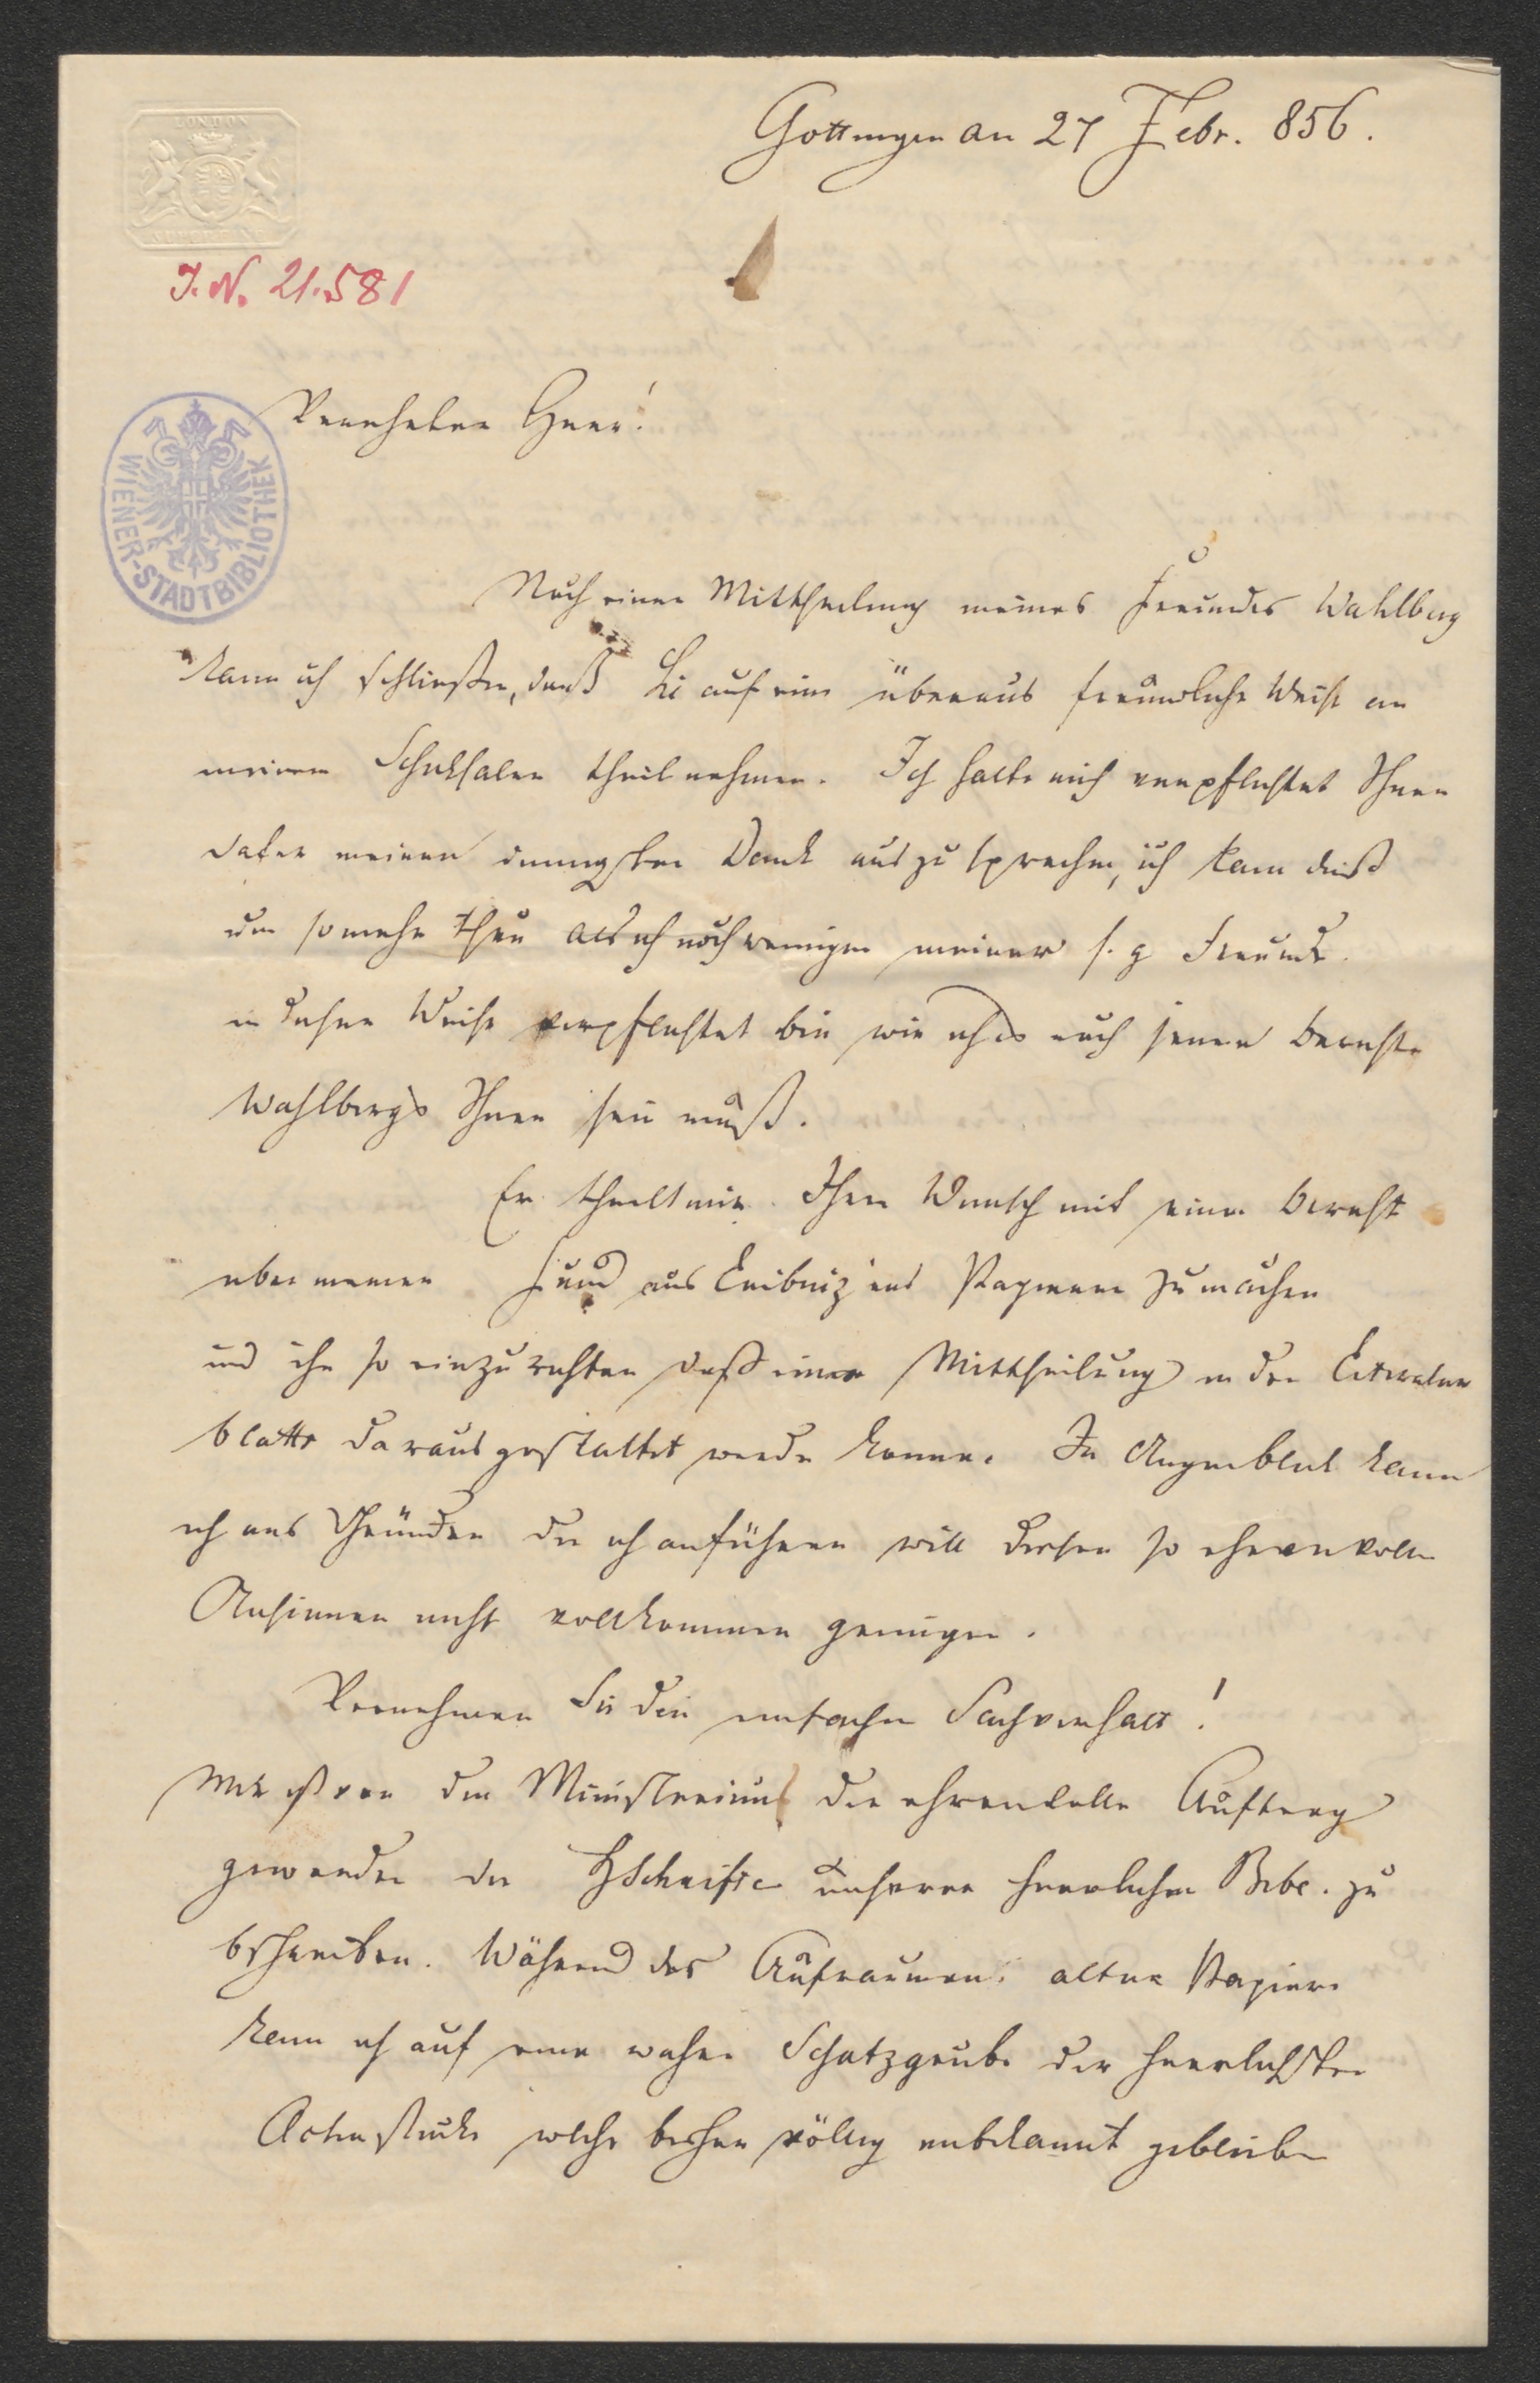 Gottingen am 27 Febr. 856.
LONDON
J. N. 21.581
WIENER-STADTBIBLIOTHEK
Verehrter Herr!
Nach einer Mittheilung meines Freundes Wahlberg
kann ich schließen, daß Sie auf eine überaus freundliche Weise an
meinen Schicksalen theil nehmen. Ich halte mich verpflichtet Ihnen
dafür meinen innigsten Dank auszusprechen, ich kann dieß
um so mehr thun als ich noch wenigen meiner s. g Freunde
in dieser Weise verpflichtet bin wie ich es nach jenem Berichte
Wahlbergs Ihnen sein muß.
Er theilt mir Ihren Wunsch mit einen Bericht
über meinen Fund aus Leibnizens Papieren zu machen
und ihn so einzurichten daß eine Mittheilung in den Literatur
blatte daraus gestaltet werde könne. Im Augenblick kann
ich aus Gründen die ich anführen will diesen so ehrenvollen
Ansinnen nicht vollkommen genügen.
Vernehmen Sie den einfachen Sachverhalt!
Mir ist von dem Ministerium der ehrenvolle Auftrag
geworden die HSchrifte unserer herrlichen Bibl. zu
beschreiben. Während des Aufräumens alter Papiere
kam ich auf eine wahre Schatzgrube der herrlichsten
Actenstücke welche bisher völlig unbekannt geblieben